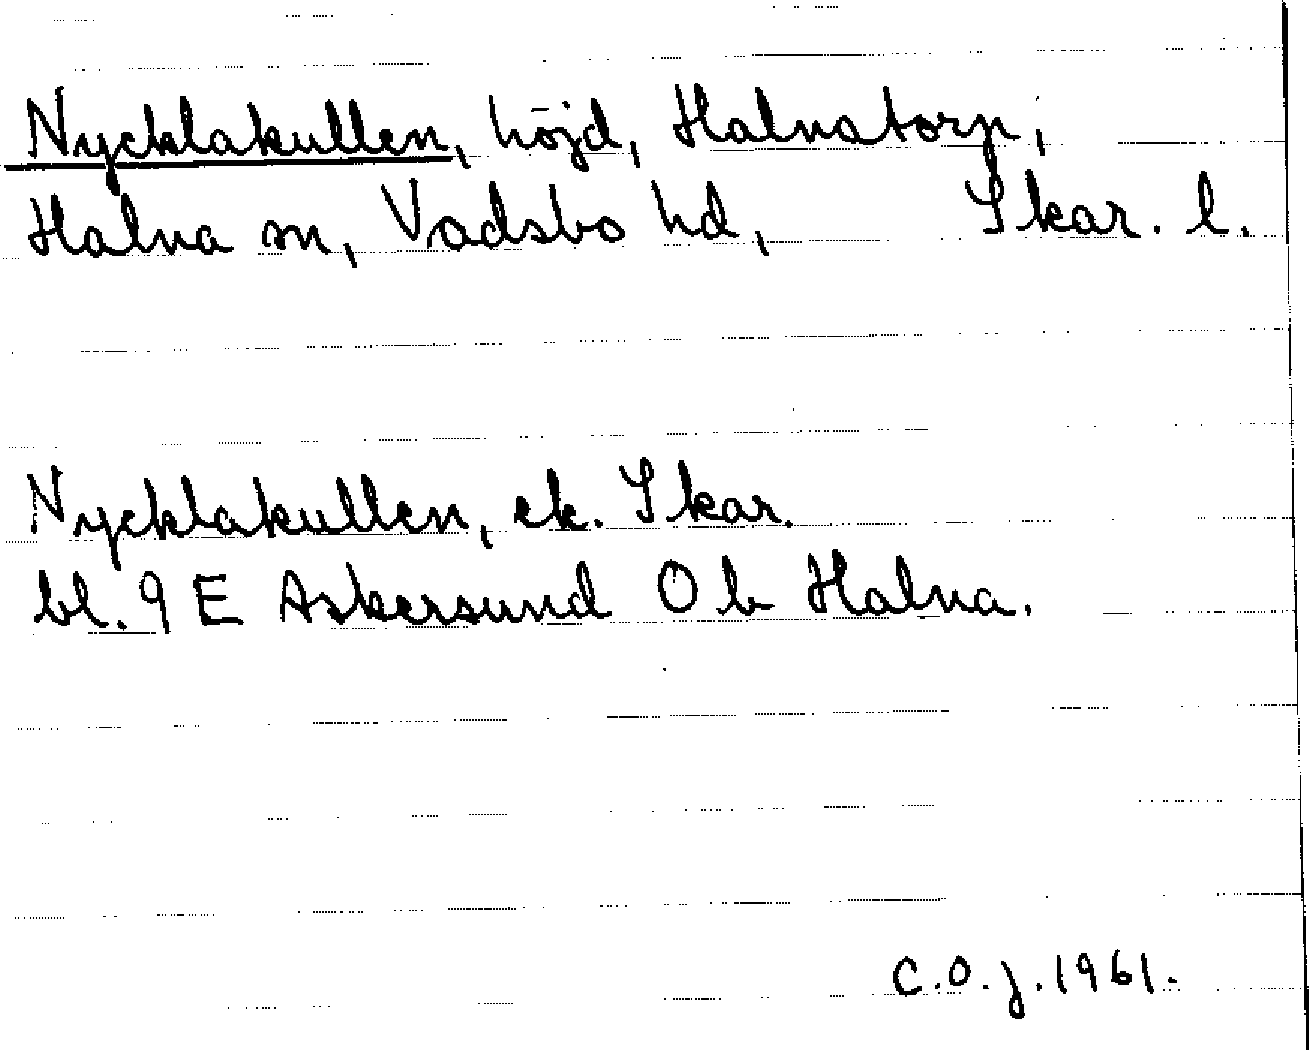 Nycklakullen, höjd, Halnatorp,
Halna sn, Vadsbo hd, Skar. l.
Nycklakullen, ek. Skar.
bl. 9 E Askersund O b Halna.
C.O.J. 1961.